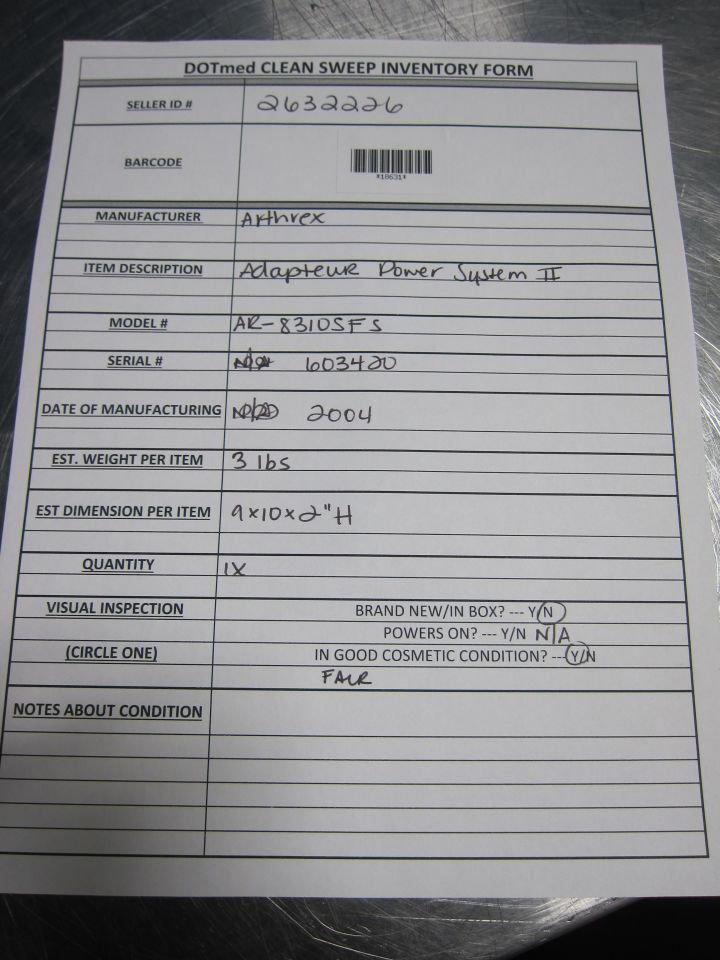 DOTmed CLEAN SWEEP INVENTORY FORM
SELLER ID # 2632226
BARCODE
*18631*
MANUFACTURER Arthrex
ITEM DESCRIPTION Adapteur Power System II
MODEL # AR-8310SFS
SERIAL # 603420
DATE OF MANUFACTURING 2004
EST. WEIGHT PER ITEM 3 lbs
EST DIMENSION PER ITEM 9x10x2"H
QUANTITY 1X
VISUAL INSPECTION BRAND NEW/IN BOX? --- Y/N
POWERS ON? --- Y/N N/A
(CIRCLE ONE) IN GOOD COSMETIC CONDITION? --- Y/N
FAIR
NOTES ABOUT CONDITION